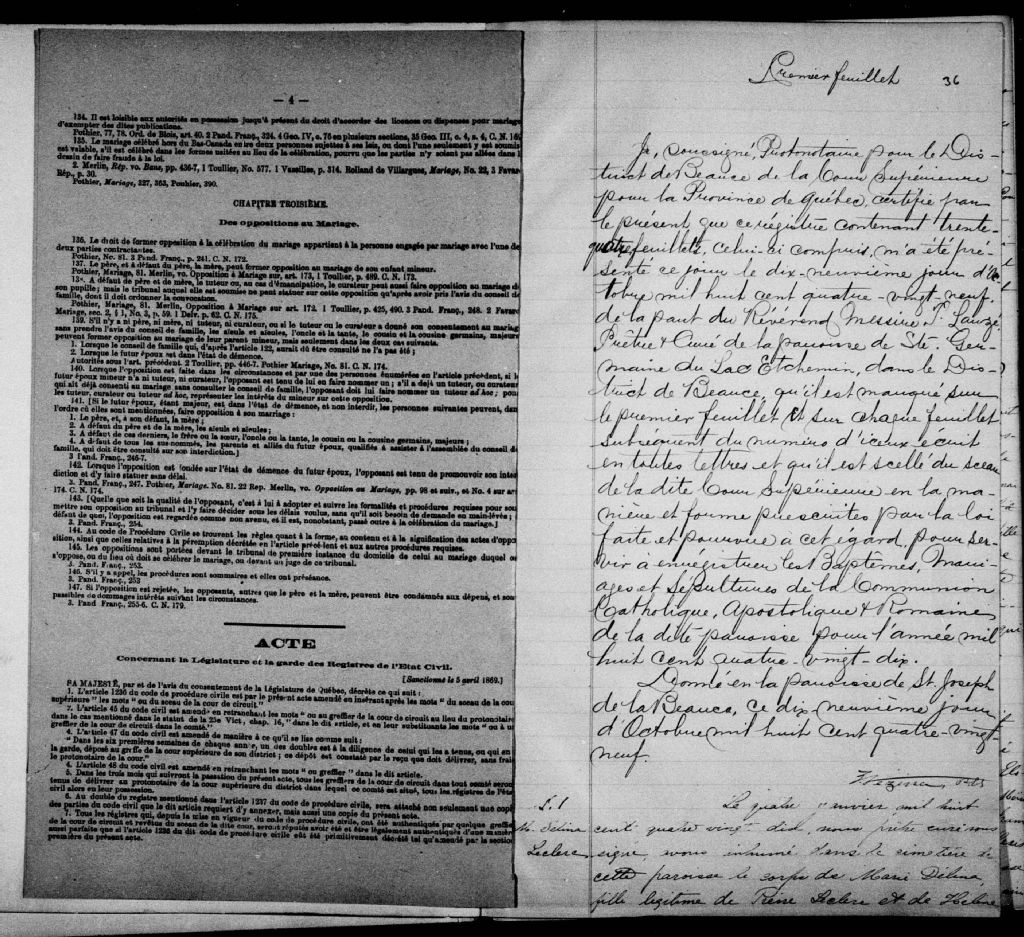 — 4 —
134. Il est loisible aux autorités en possession jusqu'à présent du droit d'accorder des licences ou dispenses pour mariage
d'exempter des dites publications.
Pothier, 77, 78. Ord. de Blois, art. 40. 2 Pand. Franç., 324. 4 Geo. IV, c. 76 en plusieurs sections, 35 Geo. III, c. 4, s. 4, C. N. 169
135. Le mariage célébré hors du Bas-Canada entre deux personnes sujettes à ses lois, ou dont l'une seulement y est soumise
est valable, s'il est célébré dans les formes usitées au lieu de la célébration, pourvu que les parties n'y soient pas allées dans l
dessin de faire fraude à la loi.
2. Merlin, Rép. vo. Bans, pp. 436-7, 1 Toullier, No. 577. 1 Vazeilles, p. 314. Rolland de Villargues, Mariage, No. 22, 3 Favard
Rép., p. 30.
Pothier, Mariage, 327, 363, Pouhier, 390.
CHAPITRE TROISIÈME.
Des oppositions au Mariage.
136. Le droit de former opposition à la célébration du mariage appartient à la personne engagée par mariage avec l'une de
deux parties contractantes.
Pothier, No. 81. 3 Pand. Franç., p. 241. C. N. 172.
137. Le père, et à défaut du père, la mère, peut former opposition au mariage de son enfant mineur.
Pothier, Mariage, 81. Merlin, vo. Opposition à Mariage sur. art, 173, 1 Toullier, p. 489. C. N. 173.
138. A défaut de père et de mère, le tuteur ou, au cas d'émancipation, le curateur peut aussi faire opposition au mariage d
son pupille; mais le tribunal auquel elle est soumise ne peut statuer sur cette opposition qu'après avoir pris l'avis du conseil de
famille, dont il doit ordonner la convocation.
Pothier, Mariage, 81, Merlin, Opposition à Mariage sur art. 172. 1 Toullier, p. 425, 490. 3 Pand. Franç., 248. 2 Favard
Mariage, sec. 2, § 1, No. 3, p. 59. 1 Delv. p. 62. C. N. 175.
139. S'il n'y a ni père, ni mère, ni tuteur, ni curateur, ou si le tuteur ou le curateur a donné son consentement au mariage
sans prendre l'avis du conseil de famille, les aïeuls et aïeules, l'oncle et la tante, le cousin et la cousine germains, majeurs
peuvent former opposition au mariage de leur parent mineur, mais seulement dans les deux cas suivants.
1. Lorsque le conseil de famille qui, d'après l'article 122, aurait dû être consulté ne l'a pas été ;
2. Lorsque le futur époux est dans l'état de démence.
Autorités sous l'art. précédent. 2 Toullier, pp. 446-7. Pothier Mariage, No. 81. C. N. 174.
140. Lorsque l'opposition est faite dans les circonstances et par une des personnes énumérées en l'article précédent, si le
futur époux mineur n'a ni tuteur, ni curateur, l'opposant est tenu de lui en faire nommer un ; s'il a déjà un tuteur, ou curateur
qui ait déjà consenti au mariage sans consulter le conseil de famille, l'opposant doit lui faire nommer un tuteur ad hoc ; pour
les tuteur, curateur ou tuteur ad hoc, représenter les intérêts du mineur sur cette opposition.
141. [Si le futur époux, étant majeur, est dans l'état de démence, et non interdit, les personnes suivantes peuvent, dans
l'ordre où elles sont mentionnées, faire opposition à son mariage :
1. Le père, et, à son défaut, la mère ;
2. A défaut du père et de la mère, les aïeuls et aïeules ;
3. A défaut de ces derniers, le frère ou la sœur, l'oncle ou la tante, le cousin ou la cousine germains, majeurs ;
4. A défaut de tous les sus-nommés, les parents et alliés du futur époux, qualifiés à assister à l'assemblée du conseil de
famille, qui doit être consulté sur son interdiction.]
3 Pand. Franç., 246-7.
142. Lorsque l'opposition est fondée sur l'état de démence du futur époux, l'opposant est tenu de promouvoir son inter
diction et d'y faire statuer sans délai.
3. Pand. Franç., 247. Pothier, Mariage. No. 81. 22 Rep. Merlin, vo. Opposition au Mariage, pp. 98 et suiv., et No. 4 sur art
174. C. N. 174.
143. [Quelle que soit la qualité de l'opposant, c'est à lui à adopter et suivre les formalités et procédures requises pour sou
mettre son opposition au tribunal et l'y faire décider sous les délais voulus, sans qu'il soit besoin de demande en main-levée ;
défaut de quoi, l'opposition est regardée comme non avenu, et il est, nonobstant, passé outre à la célébration du mariage.]
3. Pand. Franç., 254.
144. Au code de Procédure Civile se trouvent les règles quant à la forme, au contenu et à la signification des actes d'oppo
sition, ainsi que celles relatives à la péremption décrétée en l'article précédent et aux autres procédures requises.
145. Les oppositions sont portées devant le tribunal de première instance du domicile de celui au mariage duquel on
s'oppose, ou du lieu où doit se célébrer le mariage, ou devant un juge de ce tribunal.
3. Pand. Franç., 253.
146. S'il y a appel, les procédures sont sommaires et elles ont préséance.
3. Pand. Franç., 253
147. Si l'opposition est rejetée, les opposants, autres que le père et la mère, peuvent être condamnés aux dépens, et son
passibles de dommages intérêts suivant les circonstances.
3. Pand Franç., 255-6. C. N. 179.
ACTE
Concernant la Législature et la garde des Registres de l'Etat Civil.
[Sanctionné le 5 avril 1869.]
SA MAJESTÉ, par et de l'avis du consentement de la Législature de Québec, décrète ce qui suit :
1. L'article 1236 du code de procédure civile est par le présent acte amendé en insérant après les mots " du sceau de la cour
supérieure " les mots " ou du sceau de la cour de circuit."
2. L'article 45 du code civil est amendé en retranchant les mots " ou au greffier de la cour de circuit au lieu du protonotaire
dans le cas mentionné dans le statut de la 25e Vict., chap. 16," dans le dit article, et en leur substituant les mots " ou à
greffier de la cour de circuit dans le comté."
4. L'article 47 du code civil est amendé de manière à ce qu'il se lise comme suit :
" Dans les six premières semaines de chaque année, un des doubles est à la diligence de celui qui les a tenus, ou qui en
la garde, déposé au greffe de la cour supérieure de son district ; ce dépôt est constaté par le reçu que doit délivrer, sans frais
le protonotaire de la cour."
4. L'article 48 du code civil est amendé en retranchant les mots " ou greffier " dans le dit article.
5. Dans les trois mois qui suivront la passation du présent acte, tous les greffiers de la cour de circuit dans tout comté seront
tenus de délivrer au protonotaire de la cour supérieure du district dans lequel ce comté est situé, tous les régistres de l'état
civil alors en leur possession.
6. Au double du registre mentionné dans l'article 1237 du code de procédure civile, sera attaché non seulement une copie
des parties du code civil que le dit article requiert d'y annexer, mais aussi une copie du présent acte.
7. Tous les régistres qui, depuis la mise en vigueur du code de procédure civile, ont été authentiqués par quelque greffier
de la cour de circuit et revêtus du sceau de la dite cour, seront réputés avoir été et être légalement authentiqués d'une manière
aussi parfaite que si l'article 1236 du dit code de procédure civile eût été primitivement décrété tel qu'amendé par la section
première du présent acte.
Premier feuillet 36
Je, soussigné, Protonotaire pour le Dis-
trict de Beauce de la Cour Supérieure
pour la Province de Québec, certifie par
le présent que ce régistre contenant trente-
quatre feuillets, celui-ci compris, m'a été pré-
senté ce jour le dix-neuvième jour d'Oc-
tobre mil huit cent quatre-vingt-neuf.
de la part du Révérend Messire J. Lauzé
Prêtre & Curé de la paroisse de Ste. Ger-
maine du Lac Etchemin, dans le Dis-
trict de Beauce, qu'il est marqué sur
le premier feuillet et sur chaque feuillet
subséquent du numéro d'iceux écrit
en toutes lettres et qu'il est scellé du sceau
de la dite Cour Supérieure en la ma-
nière et forme prescrites par la loi
faite et pourvue à cet égard, pour ser-
vir à enrégistrer les Baptêmes, Mari-
ages et Sépultures de la Communion
Catholique, Apostolique & Romaine
de la dite paroisse pour l'année mil
huit cent quatre-vingt-dix.
Donné en la paroisse de St. Joseph
de la Beauce, ce dix-neuvième jour
d'Octobre mil huit cent quatre-vingt
neuf.
S. 1
M. Délina
Leclerc
Le quatre janvier mil huit
cent quatre vingt dix, nous prêtre curé sous
signé, avons inhumé dans le cimetière de
cette paroisse le corps de Marie Délina,
fille légitime de Pierre Leclerc et de Hélène